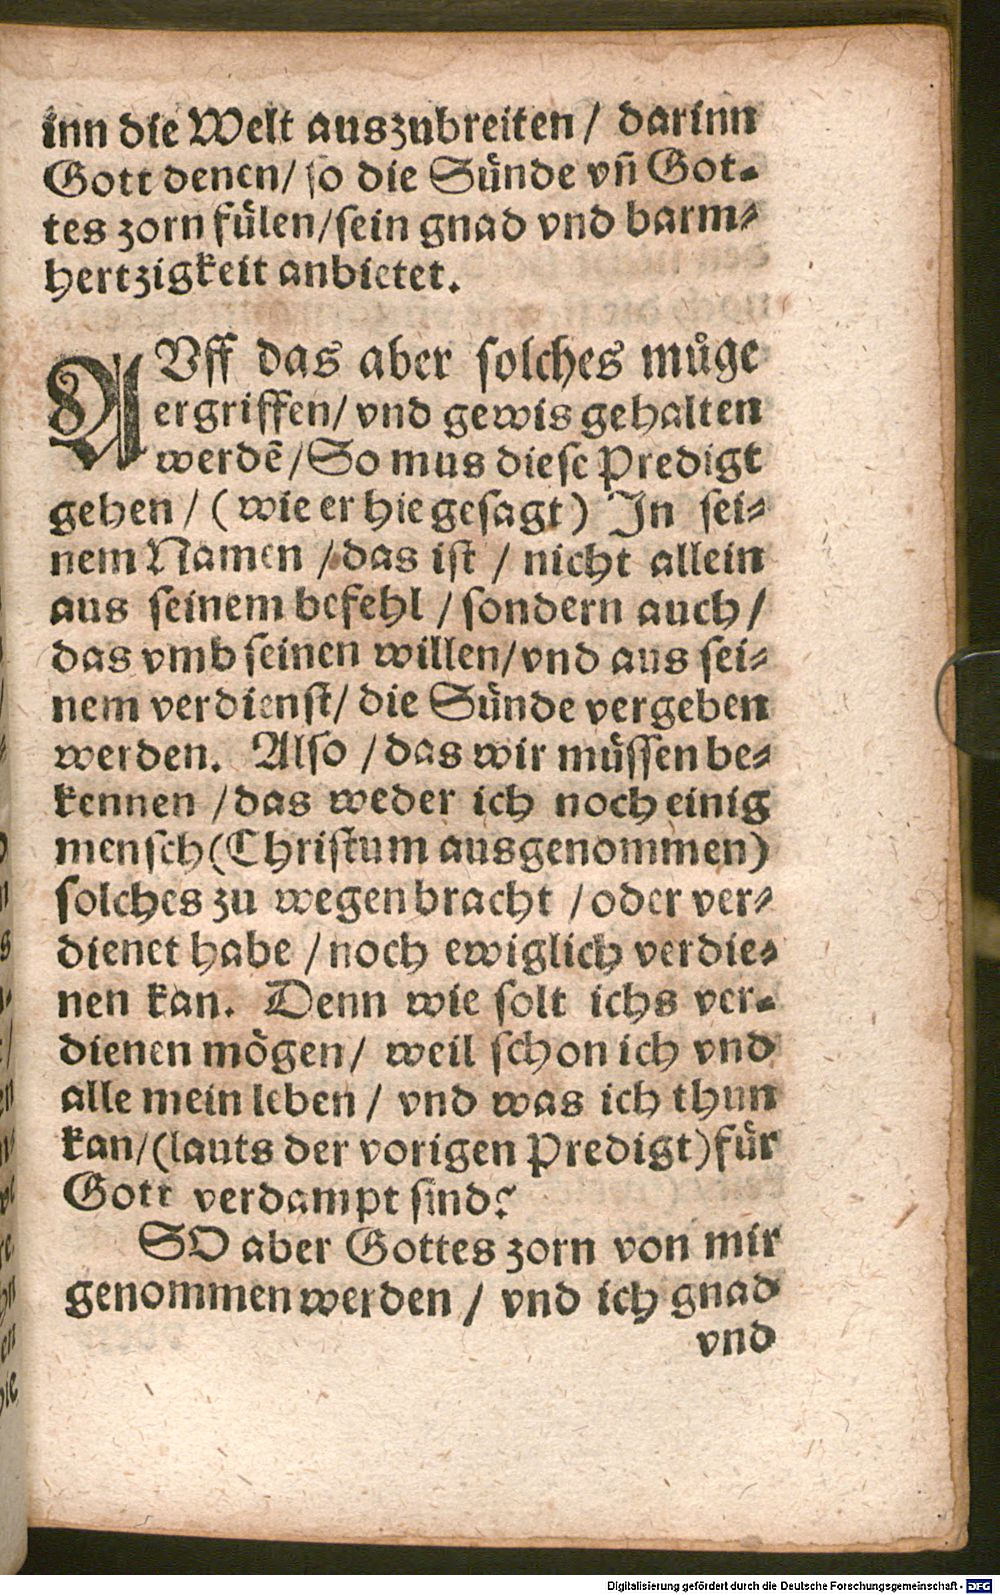 inn die Welt auszubreiten / darinn
Gott denen / so die Sünde vñ Got-
tes zorn fülen / sein gnad vnd barm-
hertzigkeit anbietet.
AVff das aber solches müge
ergriffen / vnd gewis gehalten
werdẽ / So mus diese Predigt
gehen / ( wie er hie gesagt ) In sei-
nem Namen / das ist / nicht allein
aus seinem befehl / sondern auch /
das vmb seinen willen / vnd aus sei-
nem verdienst / die Sünde vergeben
werden. Also / das wir müssen be-
kennen / das weder ich noch einig
mensch (Christum ausgenommen)
solches zu wegen bracht / oder ver-
dienet habe / noch ewiglich verdie-
nen kan. Denn wie solt ichs ver-
dienen mögen / weil schon ich vnd
alle mein leben / vnd was ich thun
kan / (lauts der vorigen Predigt) für
Gott verdampt sind?
SO aber Gottes zorn von mir
genommen werden / vnd ich gnad
vnd
Digitalisierung gefördert durch die Deutsche Forschungsgemeinschaft - DFG